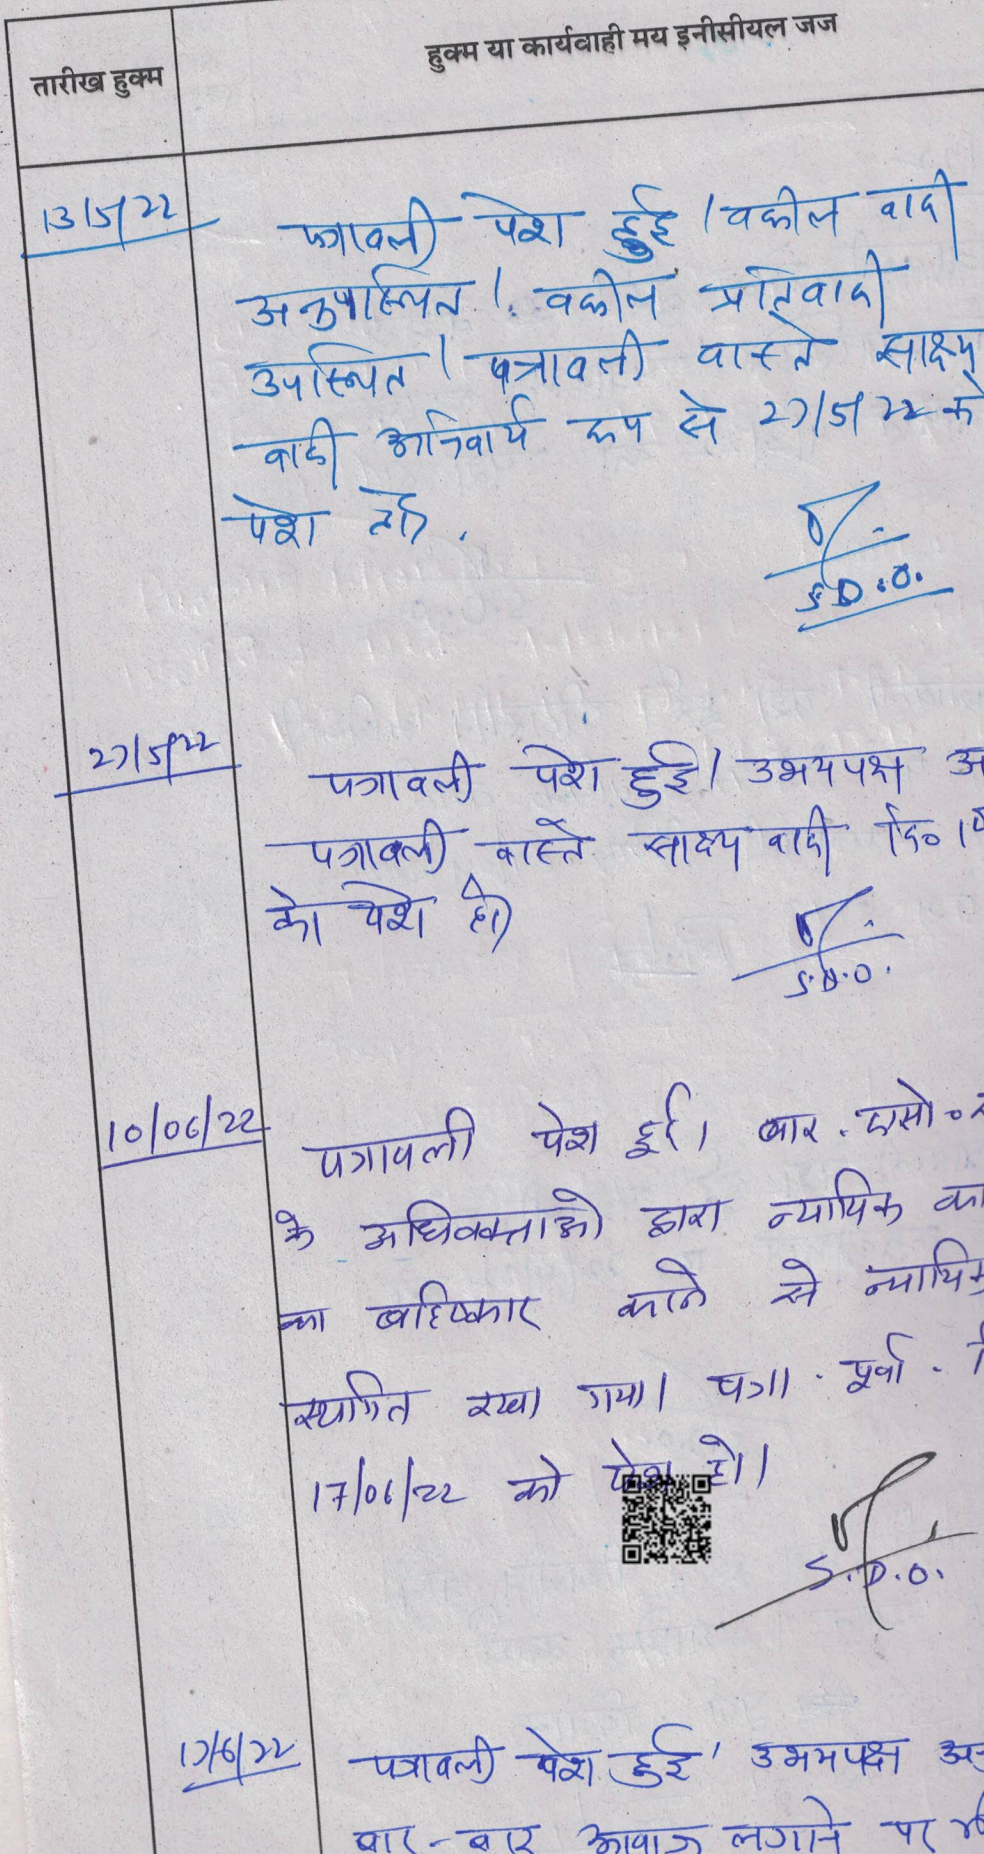 तारीख हुक्म
हुक्म या कार्यवाही मय इनीसीयल जज
13/5/22
पत्रावली पेश हुई। वकील वादी
अनुपस्थित। वकील प्रतिवादी
उपस्थित। पत्रावली वास्ते साक्ष्य
वादी अनिवार्य रूप से 27/5/22 को
पेश हो।
S.D.O.
27/5/22
पत्रावली पेश हुई। उभयपक्ष
पत्रावली वास्ते साक्ष्य वादी दि०
को पेश हो
S.D.O.
10/06/22
पत्रावली पेश हुई। बार. एसो०
के अधिवक्ताओ द्वारा न्यायिक
का बहिष्कार करने से न्यायिक
स्थगित रखा गया। पत्रा. पूर्वा.
17/06/22 को पेश हो।
S.D.O.
17/6/22
पत्रावली पेश हुई। उभयपक्ष
बार-बार आवाज लगाने पर